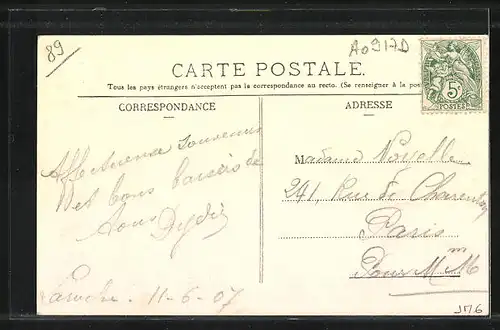 89
A0917D
CARTE POSTALE
Tous les pays étrangers n'acceptent pas la correspondance au recto. (Se renseigner à la pos
CORRESPONDANCE
ADRESSE
5c
POSTES
Affectueux souvenirs
et bons baisers de
tous
Madame Noyelle
241, Rue de Charenton
Paris
Pour M
11-6-07
JM6